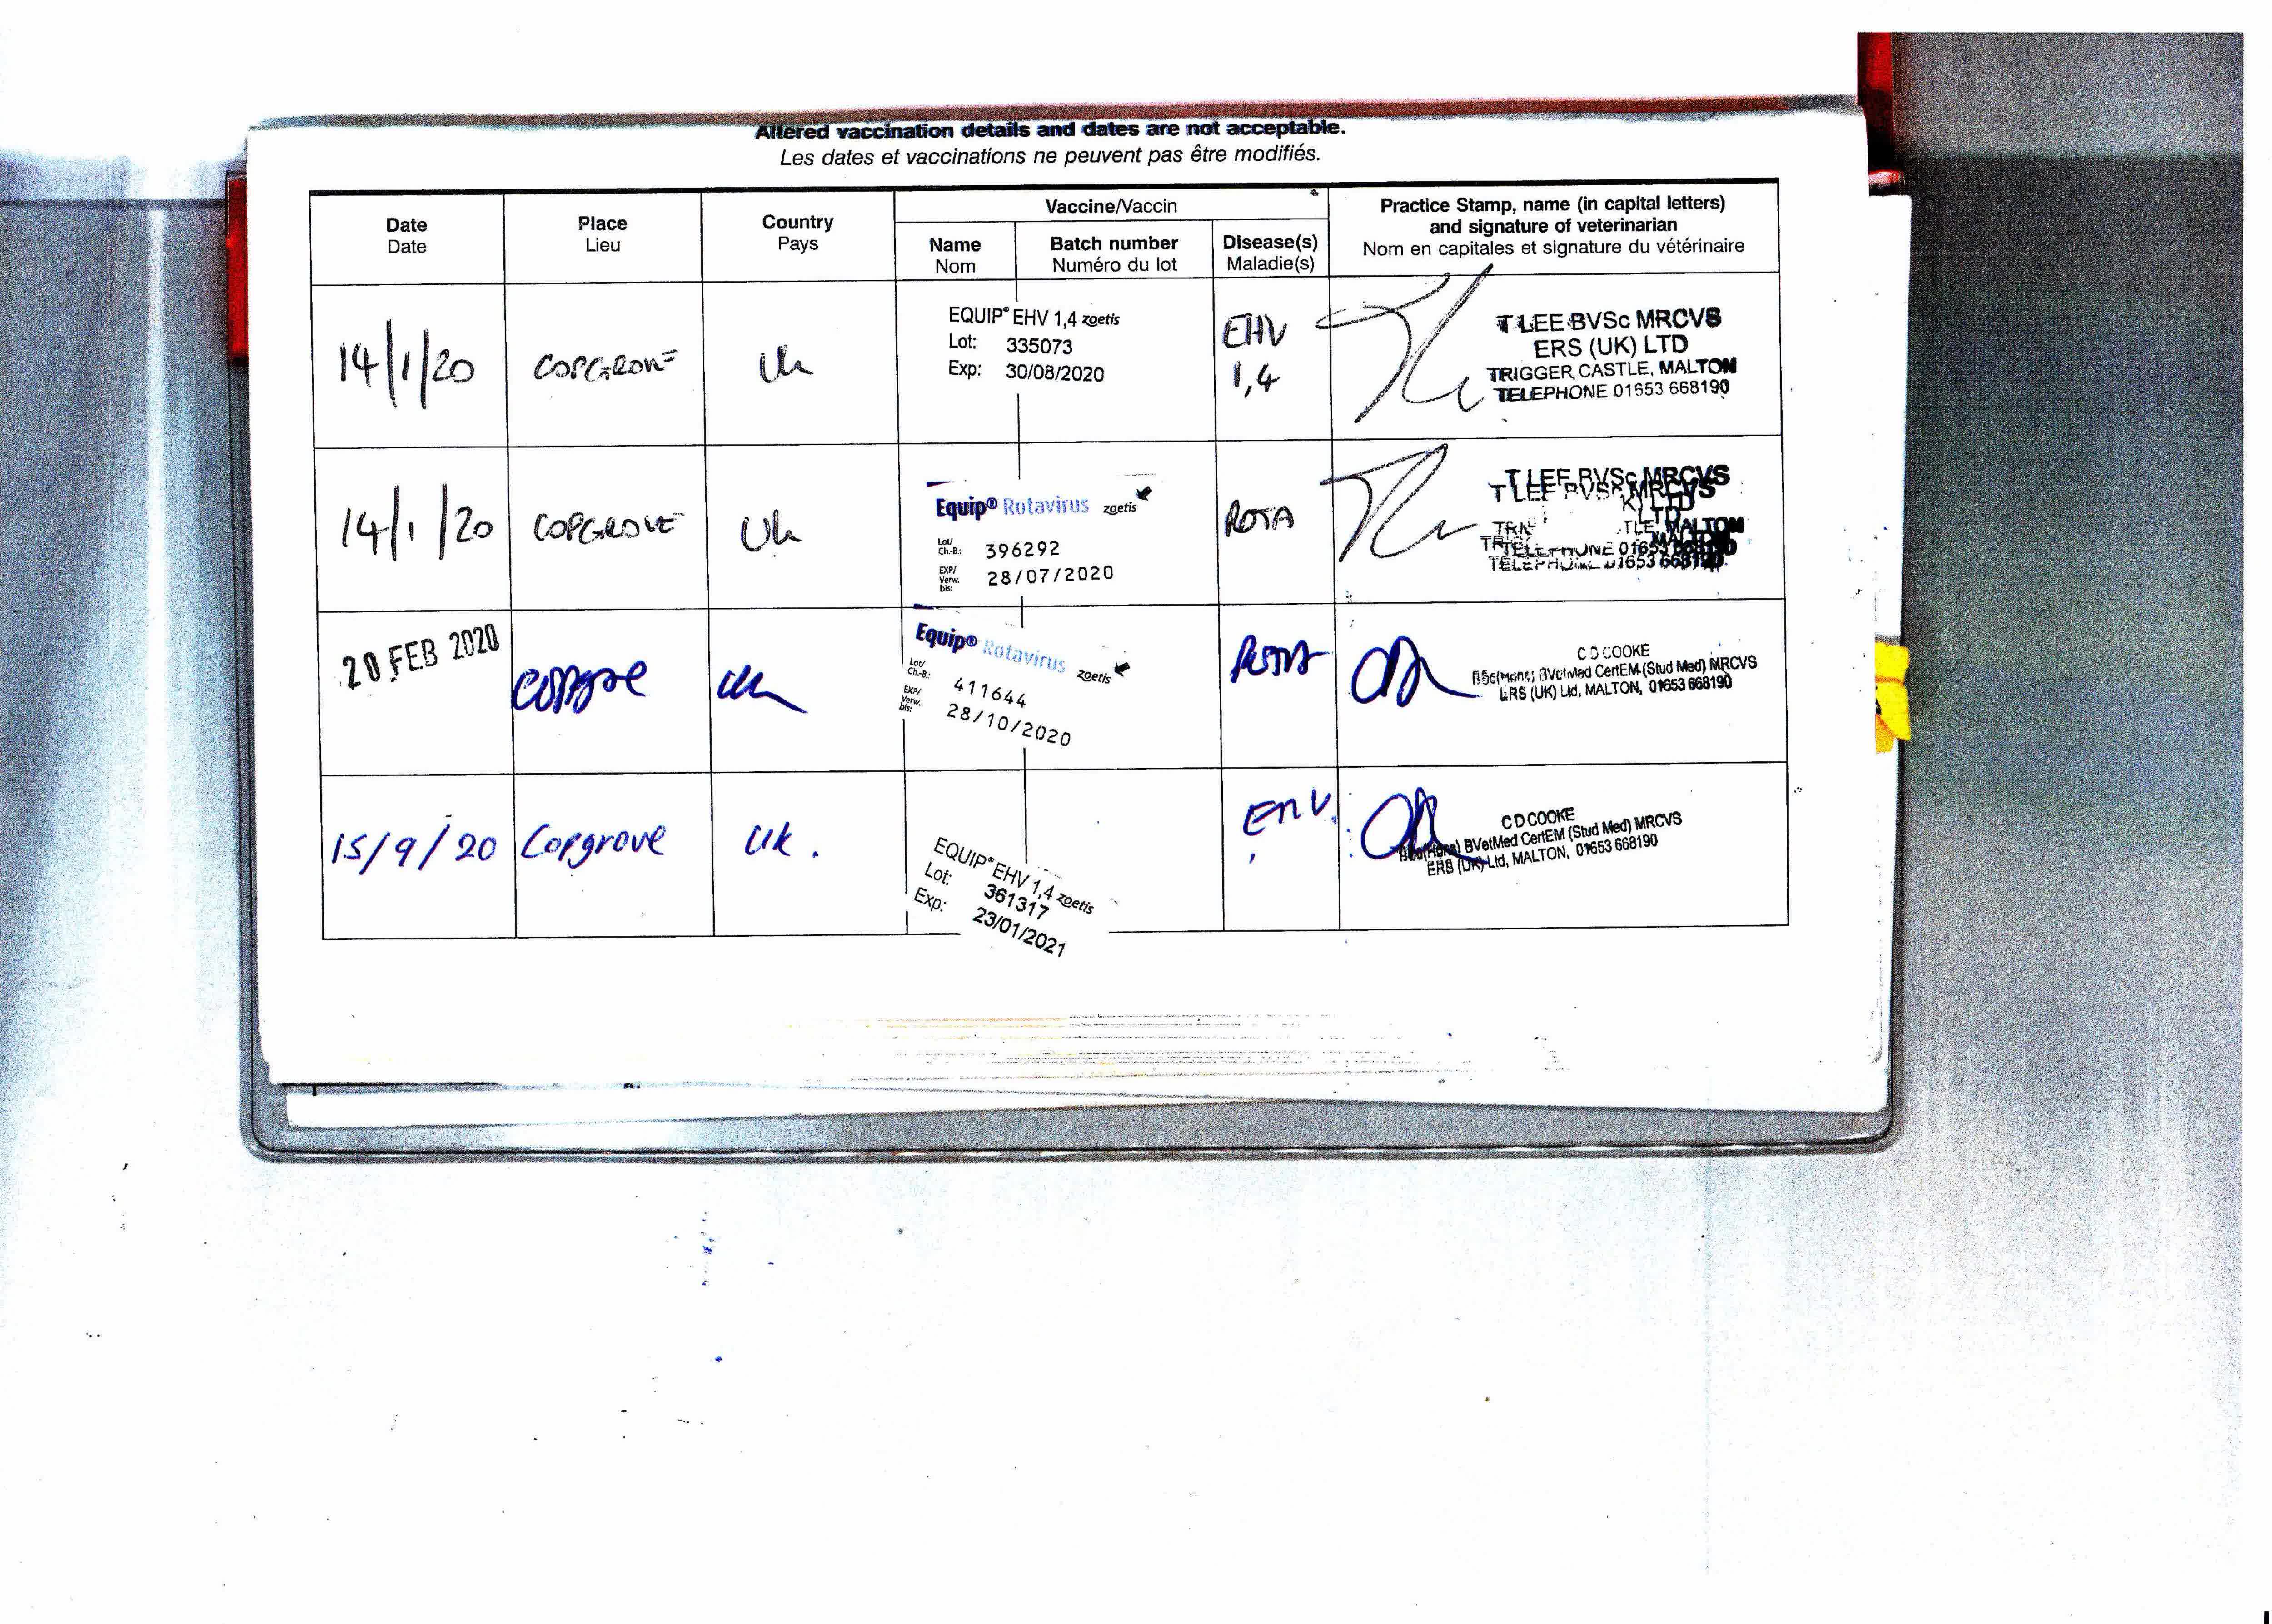 Altered vaccination details and dates are not acceptable.
Les dates et vaccinations ne peuvent pas être modifiés.
Date
Date
Place
Lieu
Country
Pays
Vaccine/Vaccin
Name
Nom
Batch number
Numéro du lot
Disease(s)
Maladie(s)
Practice Stamp, name (in capital letters)
and signature of veterinarian
Nom en capitales et signature du vétérinaire
14/1/20
COPGROVE
Uk
EQUIP® EHV 1,4 zoetis
Lot: 335073
Exp: 30/08/2020
EHV
1,4
T LEE BVSc MRCVS
ERS (UK) LTD
TRIGGER CASTLE, MALTON
TELEPHONE 01653 668190
14/1/20
COPGROVE
Uk
Equip® Rotavirus zoetis
Lot/
Ch.-B.: 396292
EXP/
Verw.
bis: 28/07/2020
ROTA
T LEE BVSc MRCVS
T LEE BVSc MRCVS
LTD
LTD
MALTON
MALTON
TELEPHONE 01653 668190
TELEPHONE 01653 668190
20 FEB 2020
Uk
Equip® Rotavirus zoetis
Lot/
Ch.-B.: 411644
EXP/
Verw.
bis: 28/10/2020
ROTA
C D COOKE
BSc(Hons) BVetMed CertEM (Stud Med) MRCVS
ERS (UK) Ltd, MALTON, 01653 668190
15/9/20
Copgrove
Uk.
EQUIP® EHV 1,4 zoetis
Lot: 361317
Exp: 23/01/2021
EHV
C D COOKE
BSc(Hons) BVetMed CertEM (Stud Med) MRCVS
ERS (UK) Ltd, MALTON, 01653 668190